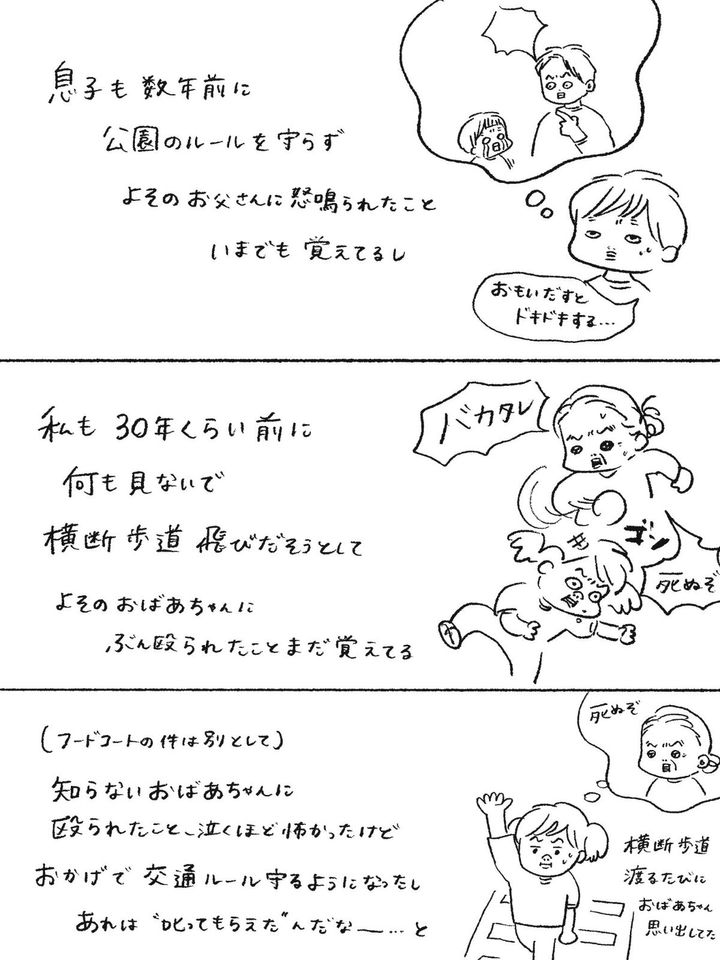 息子も数年前に
公園のルールを守らず
よそのお父さんに怒鳴られたこと
いまでも覚えてるし
おもいだすと
ドキドキする…
私も30年くらい前に
何も見ないで
横断歩道飛びだそうとして
よそのおばあちゃんに
ぶん殴られたことまだ覚えてる
バカタレ
ゴン
死ぬぞ
(フードコートの件は別として)
知らないおばあちゃんに
殴られたこと、泣くほど怖かったけど
おかげで交通ルール守るようになったし
あれは“叱ってもらえた”んだなー…と
死ぬぞ
横断歩道
渡るたびに
おばあちゃん
思い出してた